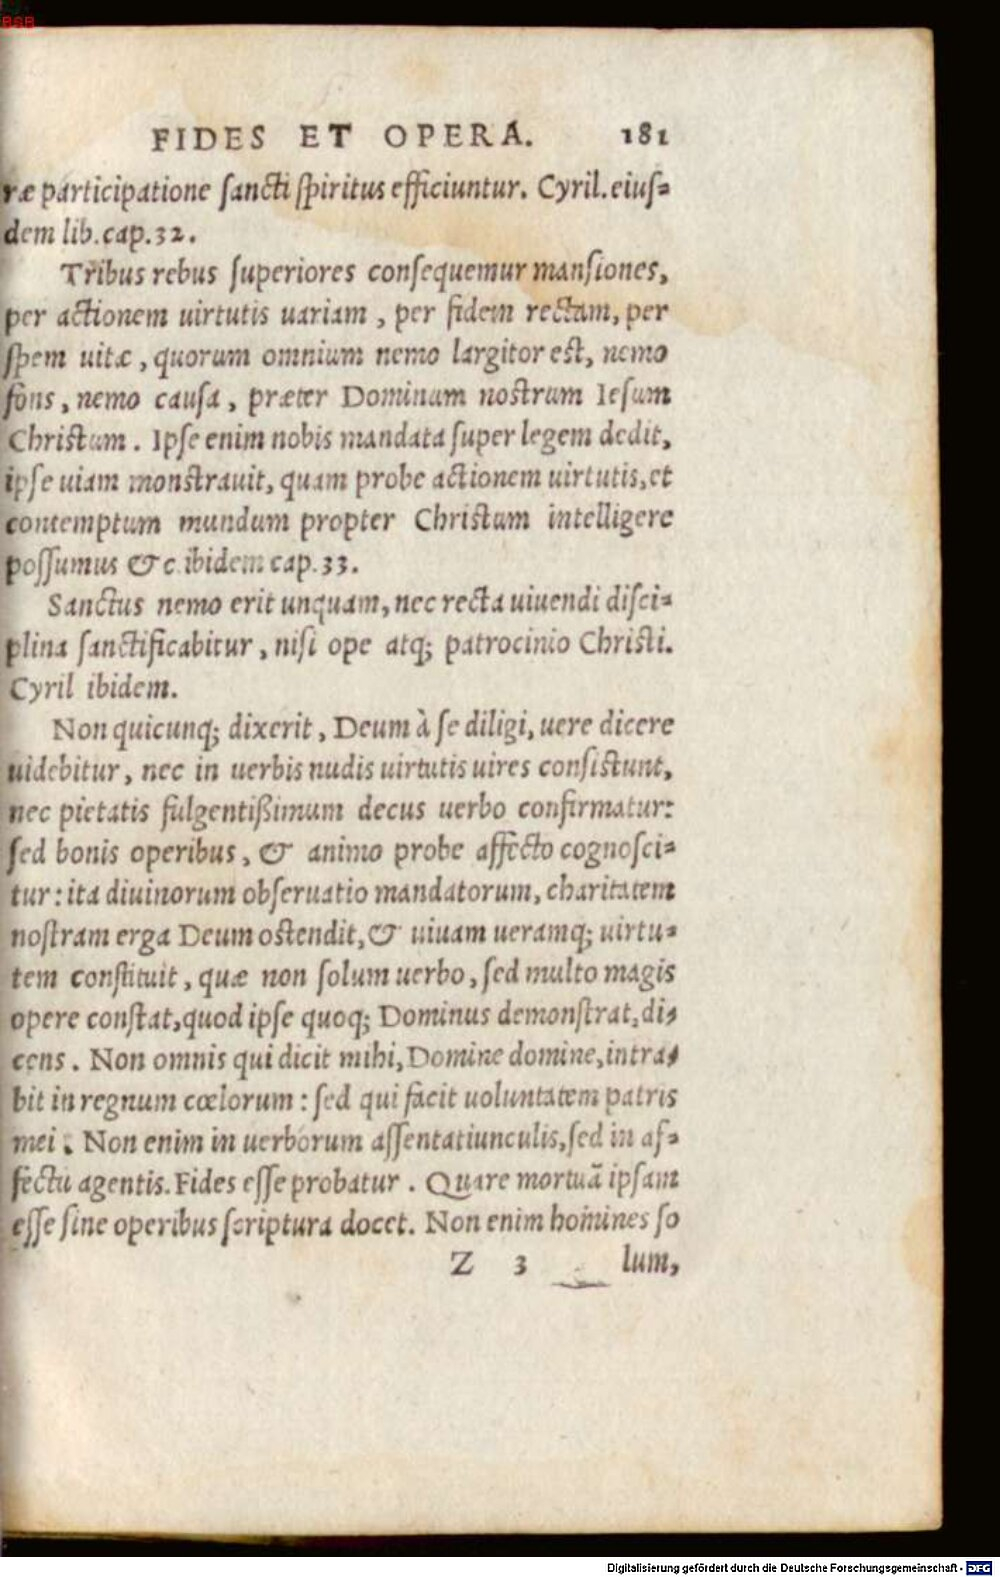 BSB
FIDES ET OPERA. 181
ræ participatione sancti spiritus efficiuntur. Cyril. eius-
dem lib. cap. 32.
Tribus rebus superiores consequemur mansiones,
per actionem uirtutis uariam, per fidem rectam, per
spem uitæ, quorum omnium nemo largitor est, nemo
fons, nemo causa, præter Dominum nostrum Iesum
Christum. Ipse enim nobis mandata super legem dedit,
ipse uiam monstrauit, quam probe actionem uirtutis, et
contemptum mundum propter Christum intelligere
possumus &c. ibidem cap. 33.
Sanctus nemo erit unquam, nec recta uiuendi disci-
plina sanctificabitur, nisi ope atq; patrocinio Christi.
Cyril ibidem.
Non quicunq; dixerit, Deum à se diligi, uere dicere
uidebitur, nec in uerbis nudis uirtutis uires consistunt,
nec pietatis fulgentißimum decus uerbo confirmatur:
sed bonis operibus, & animo probe affecto cognosci-
tur: ita diuinorum obseruatio mandatorum, charitatem
nostram erga Deum ostendit, & uiuam ueramq; uirtu-
tem constituit, quæ non solum uerbo, sed multo magis
opere constat, quod ipse quoq; Dominus demonstrat, di-
cens. Non omnis qui dicit mihi, Domine domine, intra-
bit in regnum cœlorum: sed qui facit uoluntatem patris
mei. Non enim in uerborum assentatiunculis, sed in af-
fectu agentis. Fides esse probatur. Quare mortuã ipsam
esse sine operibus scriptura docet. Non enim homines so
Z 3 lum,
Digitalisierung gefördert durch die Deutsche Forschungsgemeinschaft - DFG